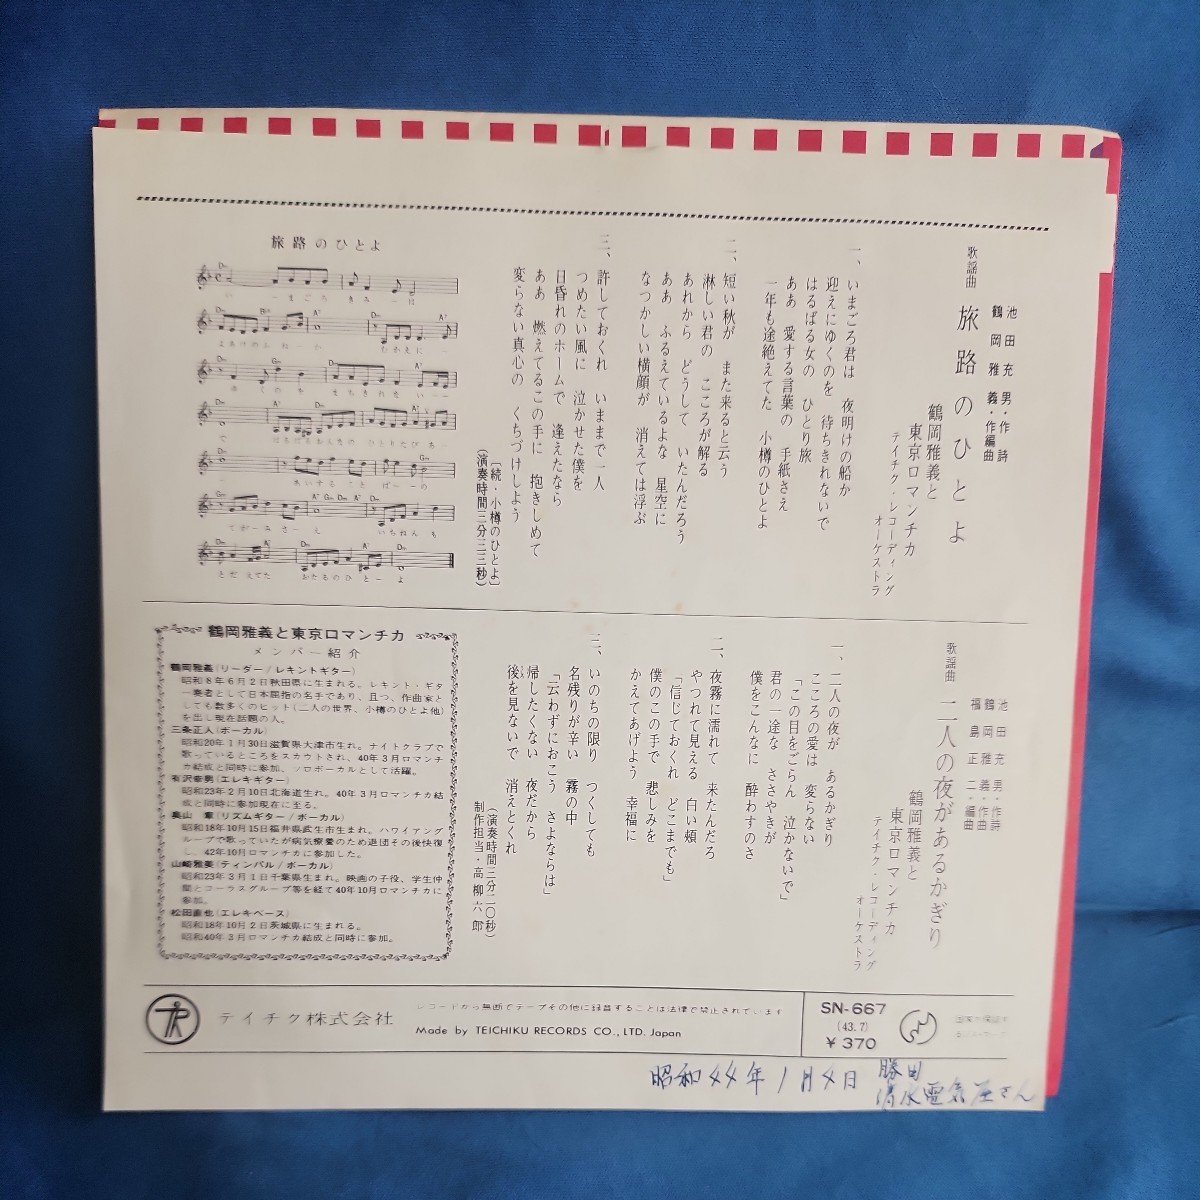 歌謡曲
旅路のひとよ
池田充男・作詩
鶴岡雅義・作編曲
鶴岡雅義と
東京ロマンチカ
テイチク・レコーディング
オーケストラ
一、いまごろ君は 夜明けの船か
迎えにゆくのを 待ちきれないで
はるばる女の ひとり旅
ああ 愛する言葉の 手紙さえ
一年も途絶えてた 小樽のひとよ
二、短い秋が また来ると云う
淋しい君の こころが解る
あれから どうして いたんだろう
ああ ふるえているよな 星空に
なつかしい横顔が 消えては浮ぶ
三、許しておくれ いままで一人
つめたい風に 泣かせた僕を
日昏れのホームで 逢えたなら
ああ 燃えてるこの手に 抱きしめて
変らない真心の くちづけしよう
〔続・小樽のひとよ〕
(演奏時間三分三三秒)
旅路のひとよ
歌謡曲
二人の夜があるかぎり
池田充男・作詩
鶴岡雅義・作曲
福島正二・編曲
鶴岡雅義と
東京ロマンチカ
テイチク・レコーディング
オーケストラ
一、二人の夜が あるかぎり
こころの愛は 変らない
「この目をごらん 泣かないで」
君の一途な ささやきが
僕をこんなに 酔わすのさ
二、夜霧に濡れて 来たんだろ
やつれて見える 白い頬
「信じておくれ どこまでも」
僕のこの手で 悲しみを
かえてあげよう 幸福に
三、いのちの限り つくしても
名残りが辛い 霧の中
「云わずにおこう さよならは」
帰したくない 夜だから
後を見ないで 消えとくれ
(演奏時間三分二〇秒)
制作担当・高柳六郎
鶴岡雅義と東京ロマンチカ
メンバー紹介
鶴岡雅義(リーダー/レキントギター)
昭和8年6月2日秋田県に生まれる。レキント・ギタ
ー奏者として日本屈指の名手であり、且つ、作曲家と
しても数多くのヒット(二人の世界、小樽のひとよ他)
を出し現在話題の人。
三条正人(ボーカル)
昭和20年1月30日滋賀県大津市生れ。ナイトクラブで
歌っているところをスカウトされ、40年3月ロマンチ
カ結成と同時に参加、ソロボーカルとして活躍。
有沢泰男(エレキギター)
昭和23年2月10日北海道生れ。40年3月ロマンチカ結
成と同時に参加現在に至る。
奥山 〓(リズムギター/ボーカル)
昭和18年10月15日福井県武生市生まれ。ハワイアング
ループで歌っていたが病気療養のため退団その後快復
し、42年10月ロマンチカに参加した。
山崎雅美(ティンバル/ボーカル)
昭和23年3月1日千葉県生まれ。映画の子役、学生仲
間とコーラスグループ等を経て40年10月ロマンチカに
参加。
松田直也(エレキベース)
昭和18年10月2日茨城県に生まれる。
昭和40年3月ロマンチカ結成と同時に参加。
テイチク株式会社
レコードから無断でテープその他に録音することは法律で禁止されています
Made by TEICHIKU RECORDS CO., LTD. Japan
SN-667
(43.7)
¥370
昭和44年1月4日
勝田
清水電気屋さん